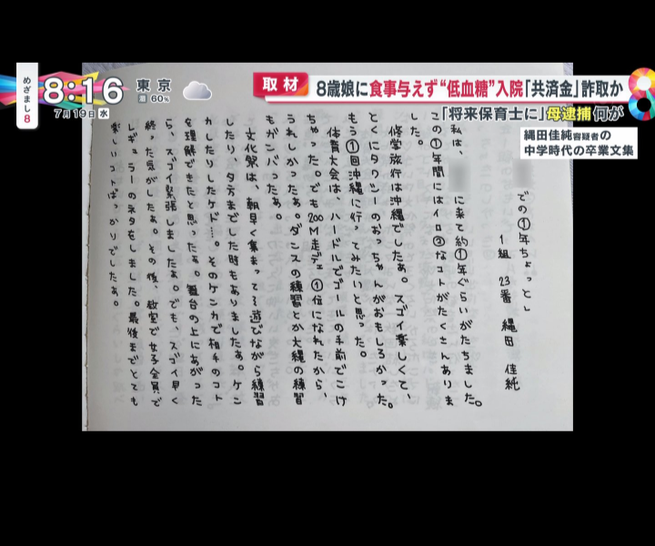 めざまし8
8:16
7月19日水
東京
60%
取材
8歳娘に食事与えず“低血糖”入院「共済金」詐取か
「将来保育士に」母逮捕 何が
縄田佳純容疑者の
中学時代の卒業文集
での①年ちょっと」
1組 23番 縄田 佳純
私は、 に来て約①年ぐらいがたちました。
この①年間にはイロ②なコトがたくさんありま
した。
修学旅行は沖縄でしたぁ。スゴイ楽しくて、
とくにタクシーのおっちゃんがおもしろかった。
もう①回沖縄に行ってみたいと思った。
体育大会は、ハードルでゴールの手前でこけ
ちゃった。でも200M走で①位になれたから、
うれしかったぁ。ダンスの練習とか大縄の練習
もガンバったぁ。
文化祭は、朝早く集まって遊びながら練習
したり、夕方までした時もありましたぁ。ケン
カしたりしたケド…。そのケンカで相手のコト
を理解できたと思ったぁ。舞台の上にあがった
ら、スゴイ緊張しましたぁ。でも、スゴイ早く
終った気がしたぁ。その後、教室で女子全員で
レギュラーのネタをしました。最後までとても
楽しいコトばっかりでしたぁ。